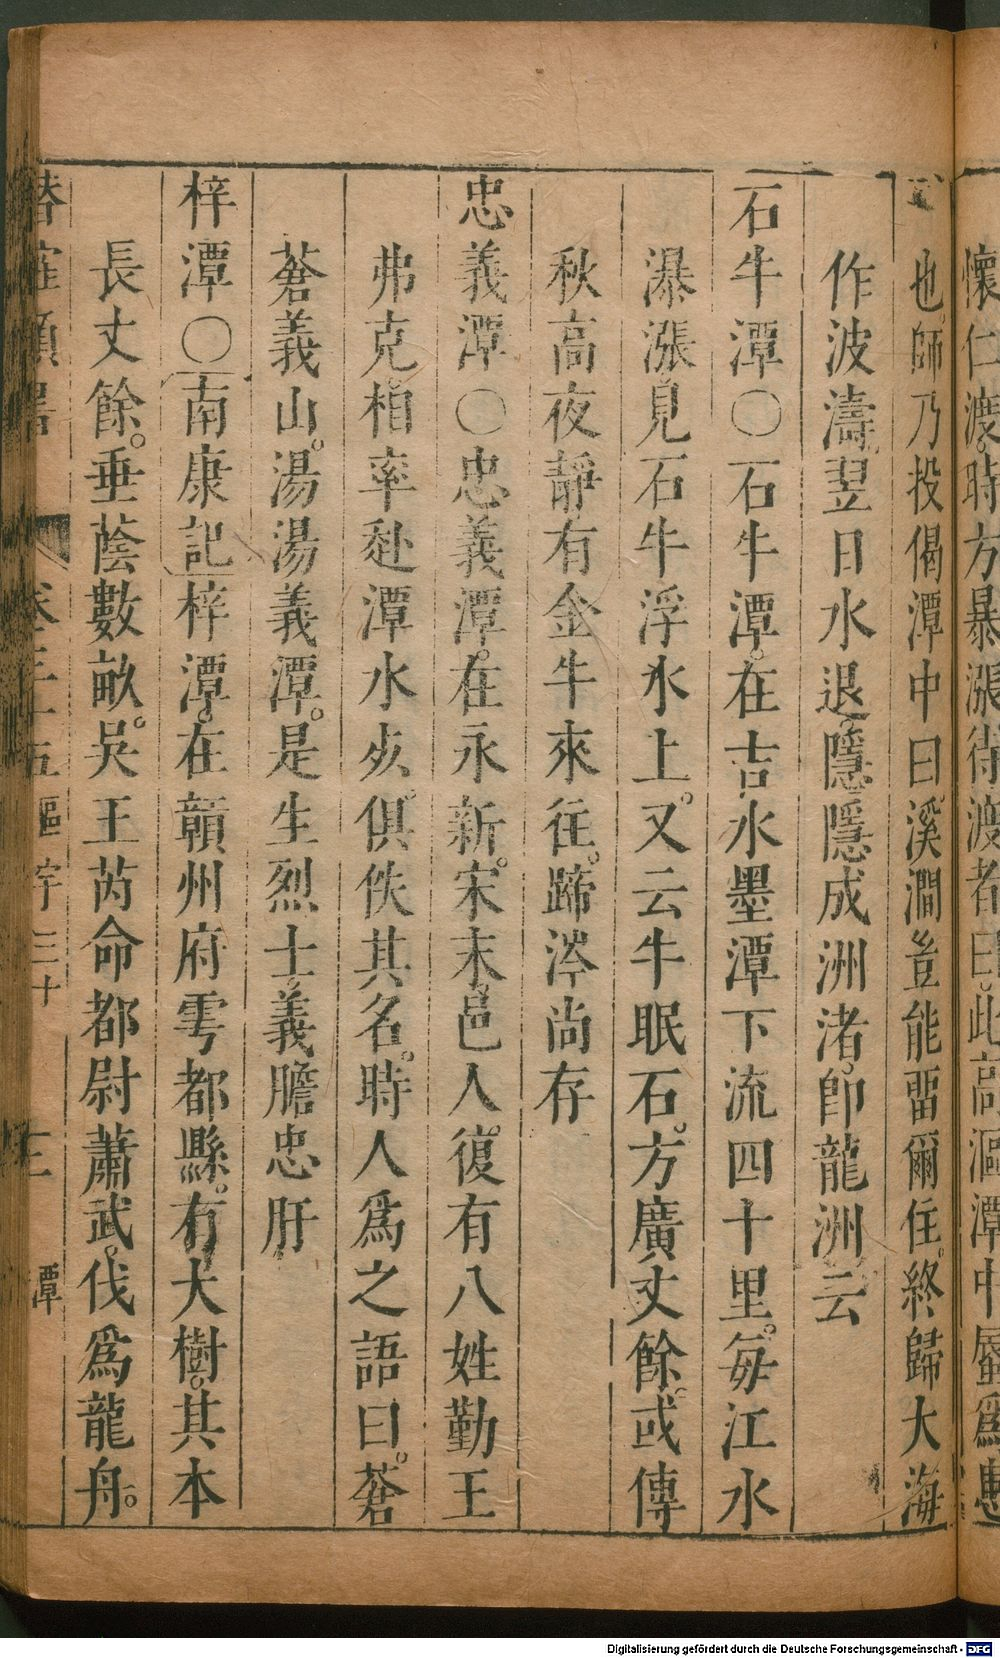 懷仁渡。時方暴漲待渡者曰。此高漚潭中蜃爲患
也。師乃投偈潭中曰溪澗豈能留爾住。終歸大海
作波濤翌日水退。隱隱成洲渚。卽龍洲云
石牛潭〇石牛潭。在吉水墨潭下流四十里。每江水
瀑漲見石牛浮水上。又云牛眠石。方廣丈餘。或傳
秋高夜靜有金牛來往。蹄涔尚存
忠義潭〇忠義潭。在永新。宋末邑人。復有八姓勤王
弗克。相率赴潭水死。俱佚其名。時人爲之語曰。蒼
蒼義山。湯湯義潭。是生烈士。義膽忠肝
梓潭〇南康記梓潭。在贛州府雩都縣。有大樹。其本
長丈餘。垂蔭數畝。吳王芮命都尉蕭武。伐爲龍舟。
卷三十五 區宇三十 潭
Digitalisierung gefördert durch die Deutsche Forschungsgemeinschaft - DFG